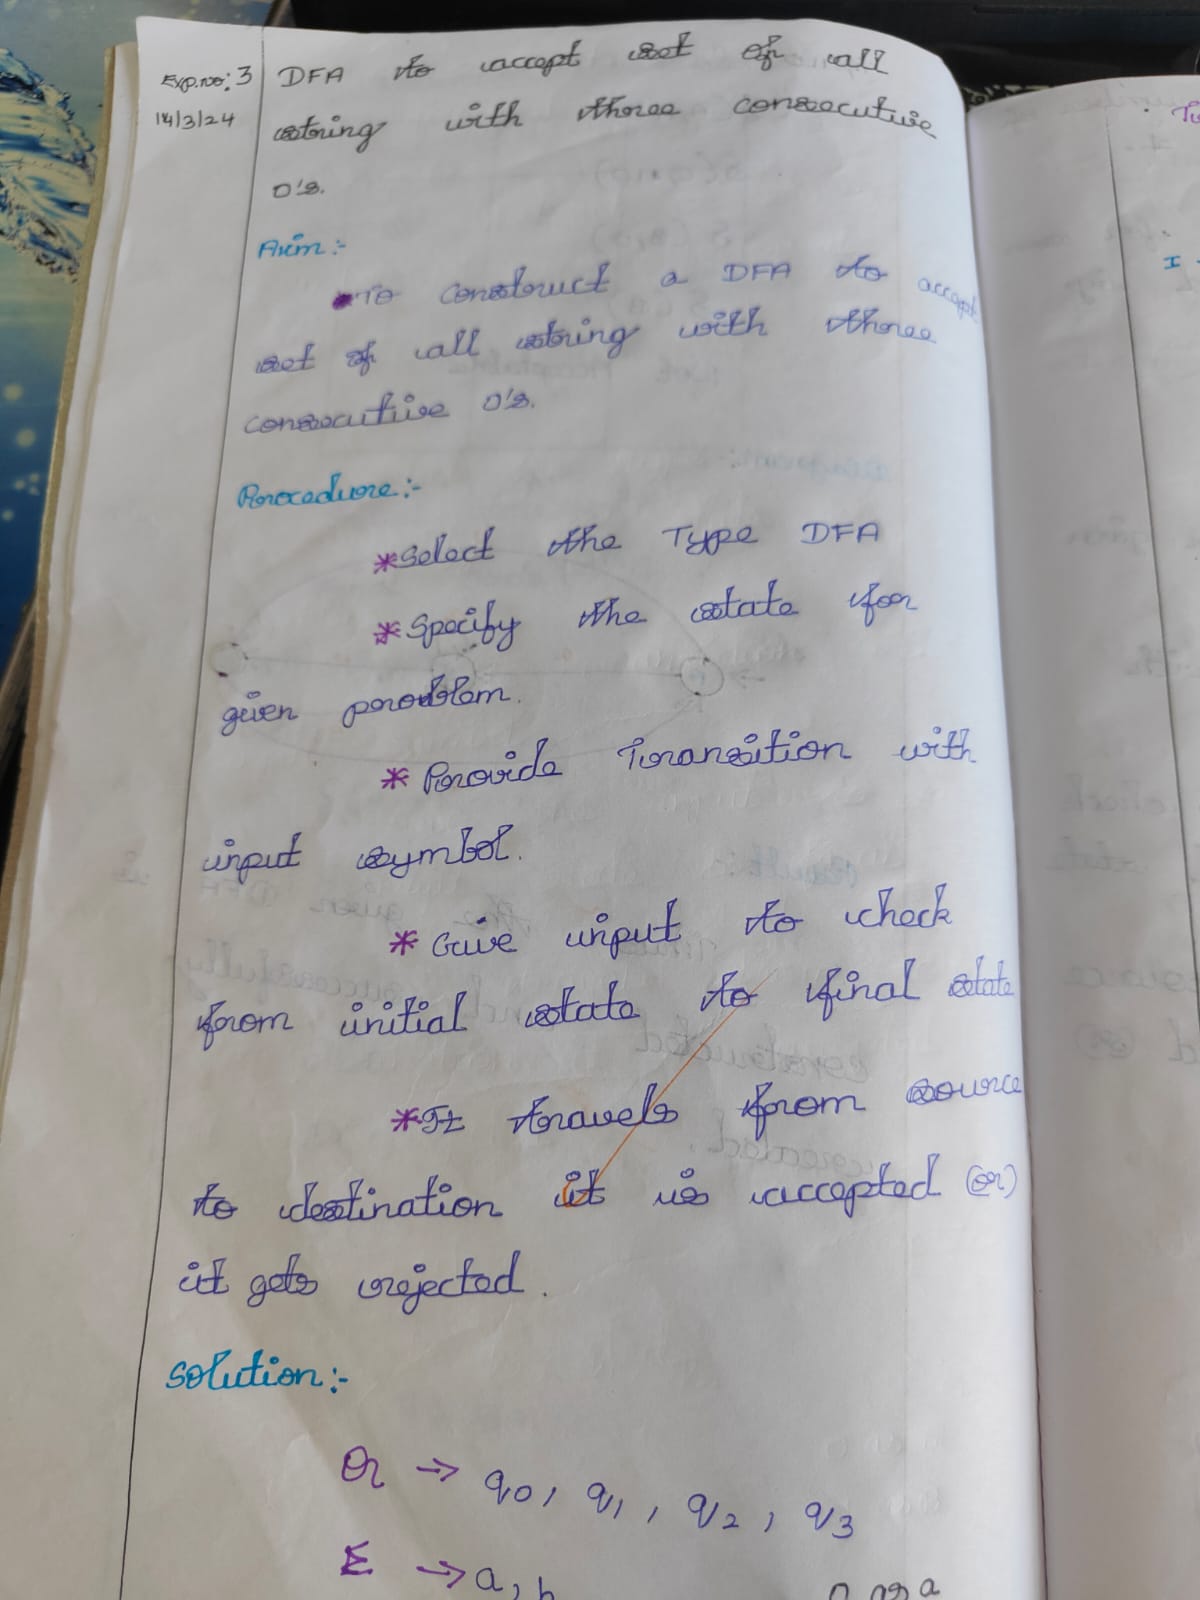 Exp.no: 3
14/3/24
DFA to accept set of all
string with three consecutive
0's.
Aim:-
To construct a DFA to accept
set of all string with three
consecutive 0's.
Procedure:-
*Select the Type DFA
*Specify the state for
given problem.
* Provide Transition with
input symbol.
* Give input to check
from initial state to final state
*It travels from source
to destination it is accepted (or)
it gets rejected.
Solution:-
Q → q0, q1, q2, q3
Σ → a, b